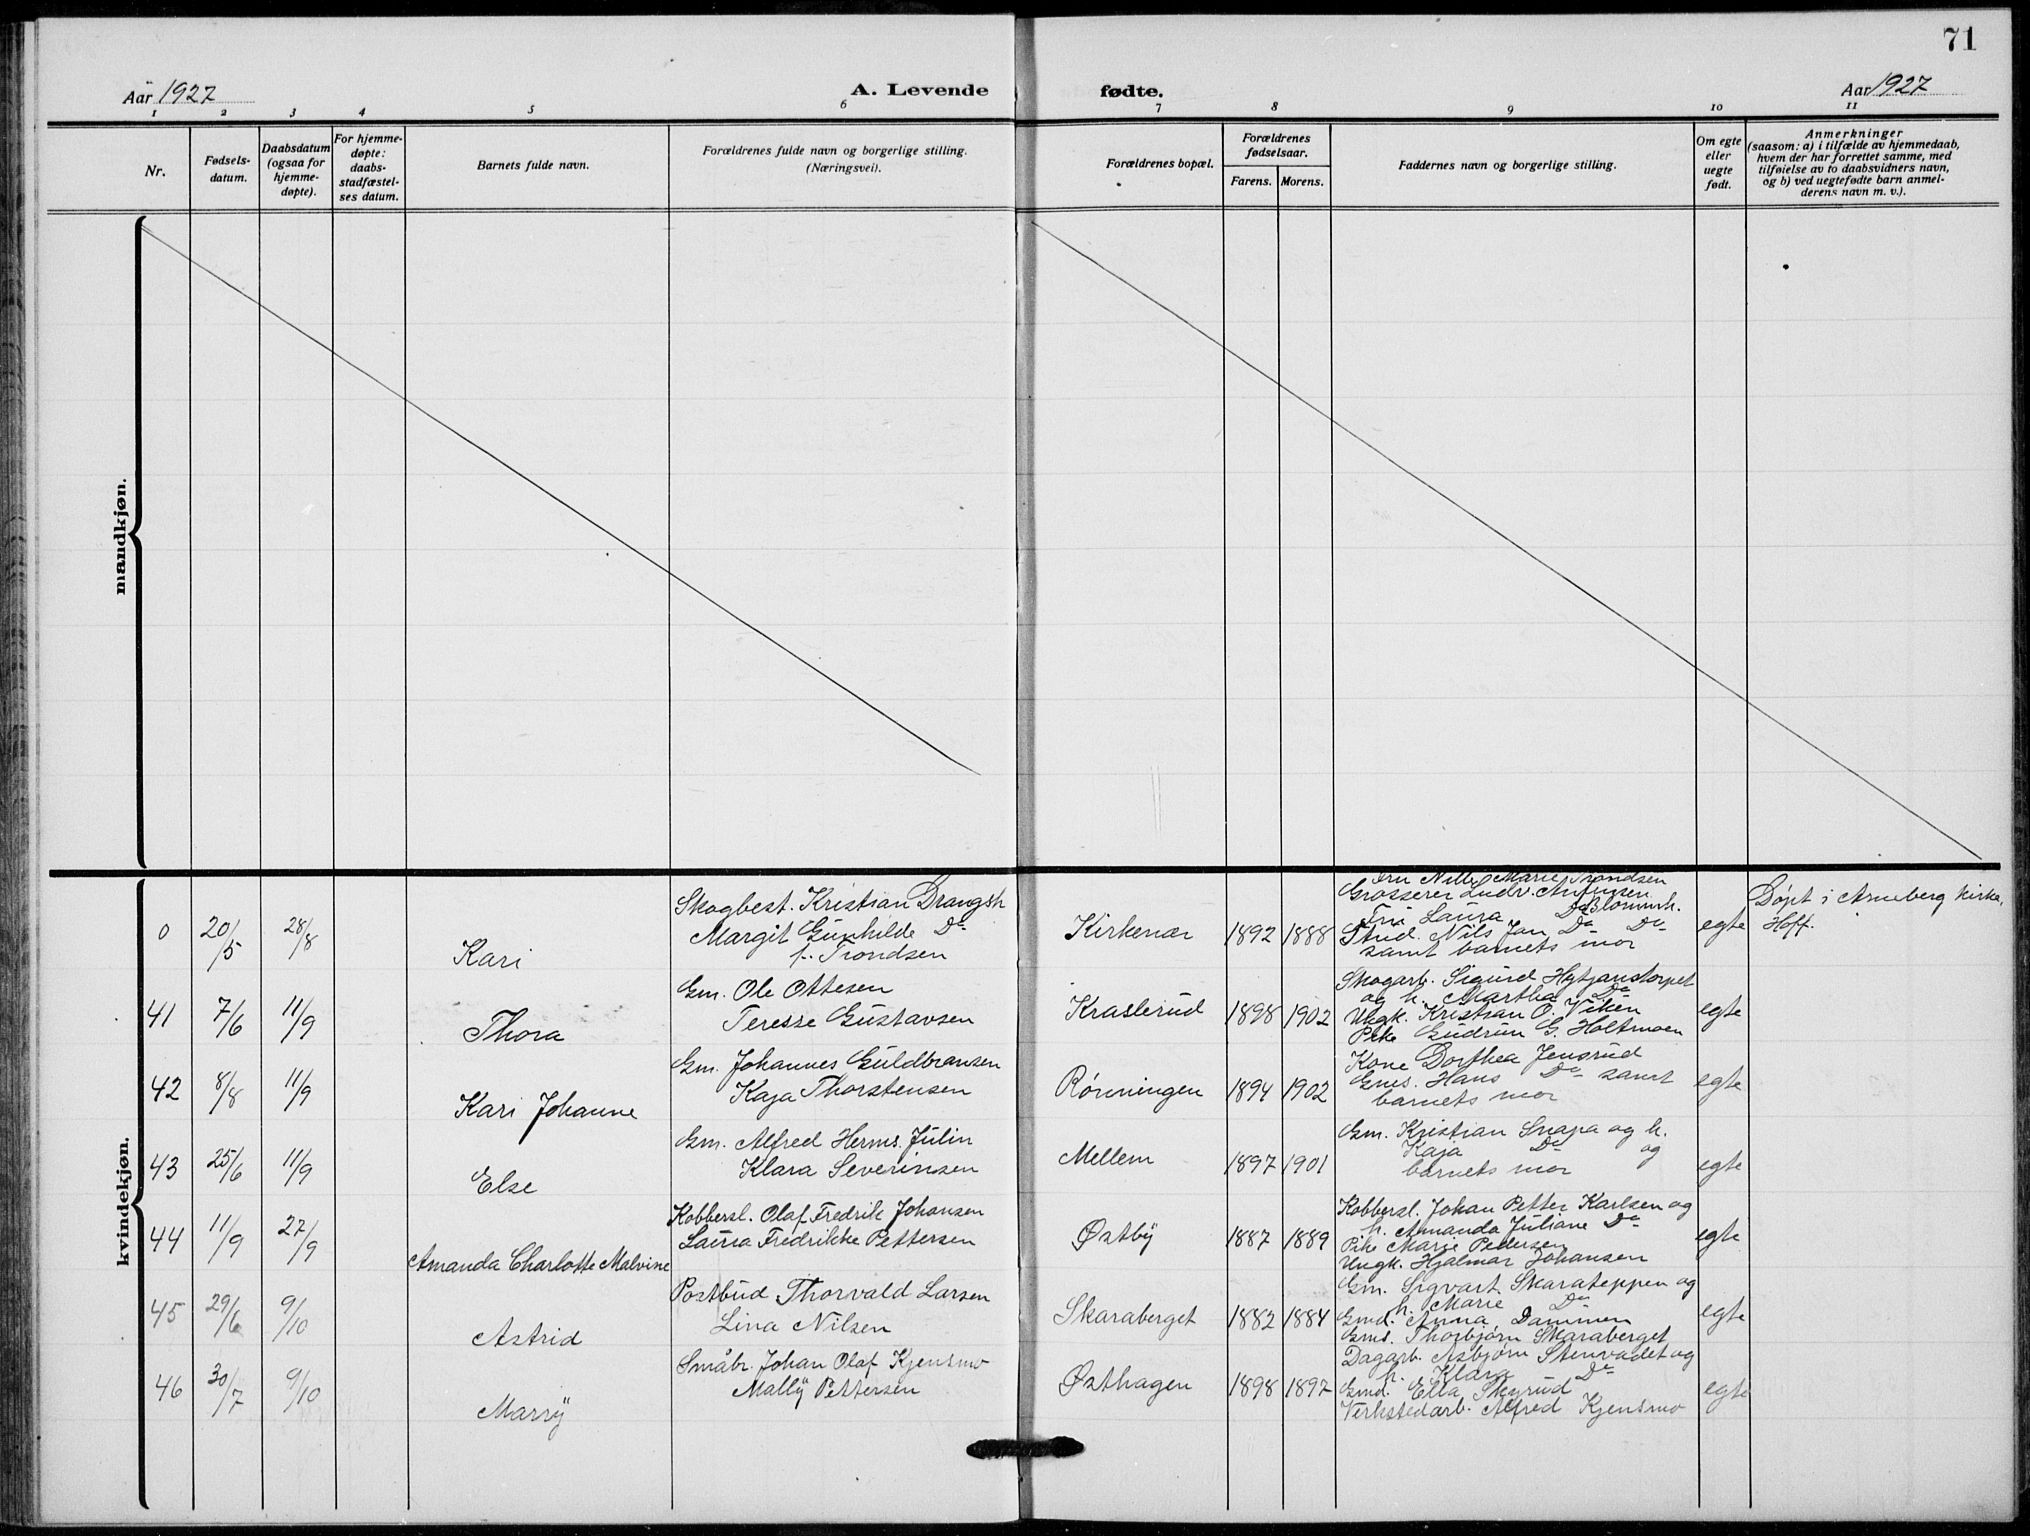 71
Aar 1927
A. Levende fødte.
Aar 1927
1 2 3 4 5 6 7 8 9 10 11
Nr.
Fødsels-
datum.
Daabsdatum
(ogsaa for
hjemme-
døpte).
For hjemme-
døpte:
daabs-
stadfæstel-
ses datum.
Barnets fulde navn.
Forældrenes fulde navn og borgerlige stilling.
(Næringsvei).
Forældrenes bopæl.
Forældrenes
fødselsaar.
Farens. Morens.
Faddernes navn og borgerlige stilling.
Om egte
eller
uegte
født.
Anmerkninger
(saasom: a) i tilfælde av hjemmedaab,
hvem der har forrettet samme, med
tilføielse av to daabsvidners navn,
og b) ved uegtefødte barn anmel-
derens navn m. v.).
mandkjøn.
kvindekjøn.
0 20/5 28/8 Kari
Skogbest. Kristian Drangsh
Margit Gunhilde Do
f. Trondsen
Kirkenær 1892 1888
Fru Marie Trondsen
Grosserer Ludv.
Fru Laura Do Blommh.
Stud. Nils Jan Do Do
samt barnets mor
egte
Døpt i Arneberg kirke,
Hoff.
41 7/6 11/9 Thora
Gm. Ole Ottesen
Terese Gustavsen
Kraslerud 1898 1902
Skogarb. Sigurd Hytjanstorpet
og h. Martha Do
Ungk. Kristian O. Viken
Pike Gudrun G. Holtmoen
egte
42 8/8 11/9 Kari Johanne
Gm. Johannes Guldbransen
Kaja Thorstensen
Rønningen 1894 1902
Kone Dorthea Jensrud
Gms. Hans Do samt
barnets mor
egte
43 25/6 11/9 Else
Gm. Alfred Herms. Julin
Klara Severinsen
Mellem 1897 1901
Gm. Kristian Snapa og h.
Kaja Do og
barnets mor
egte
44 11/9 27/9 Amanda Charlotte Malvine
Kobbersl. Olaf Fredrik Johansen
Laura Fredrikke Pettersen
Østby 1887 1889
Kobbersl. Johan Petter Karlsen og
h. Amanda Juliane Do
Pike Marie Pedersen
Ungk. Hjalmar Johansen
egte
45 29/6 9/10 Astrid
Postbud Thorvald Larsen
Lina Nilsen
Skaraberget 1882 1884
Gm. Sigvart Skarateppen og
h. Marie Do
Gmd. Anna Dammen
Gms. Thorbjørn Skaraberget
egte
46 30/7 9/10 Marry
Småbr. Johan Olaf Kjensmo
Mally Pettersen
Østhagen 1898 1897
Dagarb. Asbjørn Stenvadet og
h. Klara Do
Gmd. Ella Skyrud
Verkstedarb. Alfred Kjensmo
egte